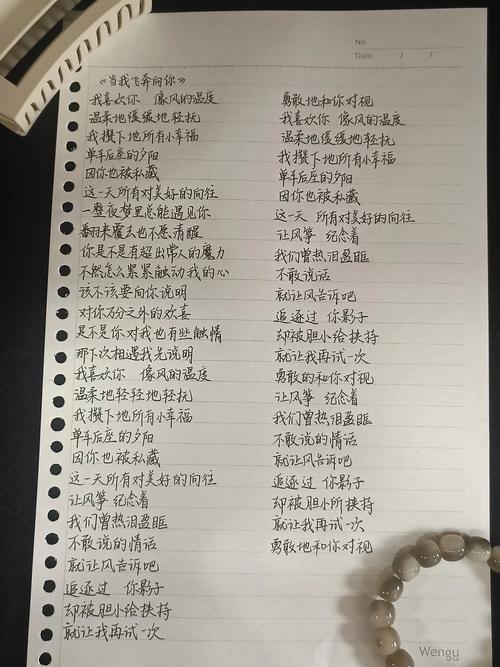 No.
Date: / /
《当我飞奔向你》
我喜欢你 像风的温度
温柔地缓缓地轻抚
我攒下地所有小幸福
单车后座的夕阳
因你也被私藏
这一天所有对美好的向往
一整夜梦里总能遇见你
翻来覆去也不愿清醒
你是不是有超出常人的魔力
不然怎么紧紧触动我的心
该不该要向你说明
对你万分之外的欢喜
是不是你对我也有些触情
那下次相遇我先说明
我喜欢你 像风的温度
温柔地轻轻地轻抚
我攒下地所有小幸福
单车后座的夕阳
因你也被私藏
这一天所有对美好的向往
让风筝 纪念着
我们曾热泪盈眶
不敢说的情话
就让风告诉吧
追逐过 你影子
却被胆小给挟持
就让我再试一次
勇敢地和你对视
我喜欢你 像风的温度
温柔地缓缓地轻抚
我攒下地所有小幸福
单车后座的夕阳
因你也被私藏
这一天 所有对美好的向往
让风筝 纪念着
我们曾热泪盈眶
不敢说话
就让风告诉吧
追逐过 你影子
却被胆小给挟持
就让我再试一次
勇敢的和你对视
让风筝 纪念着
我们曾热泪盈眶
不敢说的情话
就让风告诉吧
追逐过 你影子
却被胆小所挟持
就让我再试一次
勇敢地和你对视
Wengu